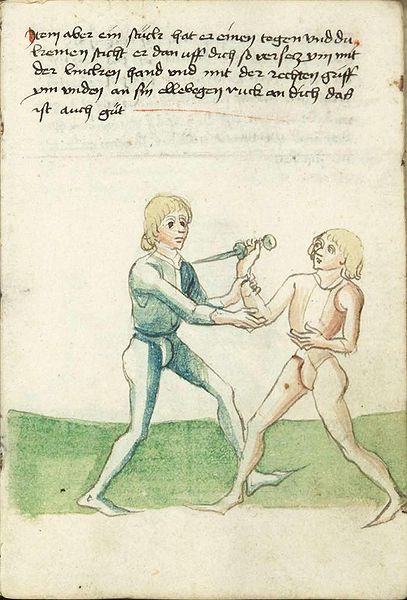 Item aber ein stückr hat er einen tegen vnd du
keinen sticht er dan vff dich so versetz ym mit
der lincken hand vnd mit der rechten griff
ym vnden an sin ellebogen ruck an dich das
ist auch güt